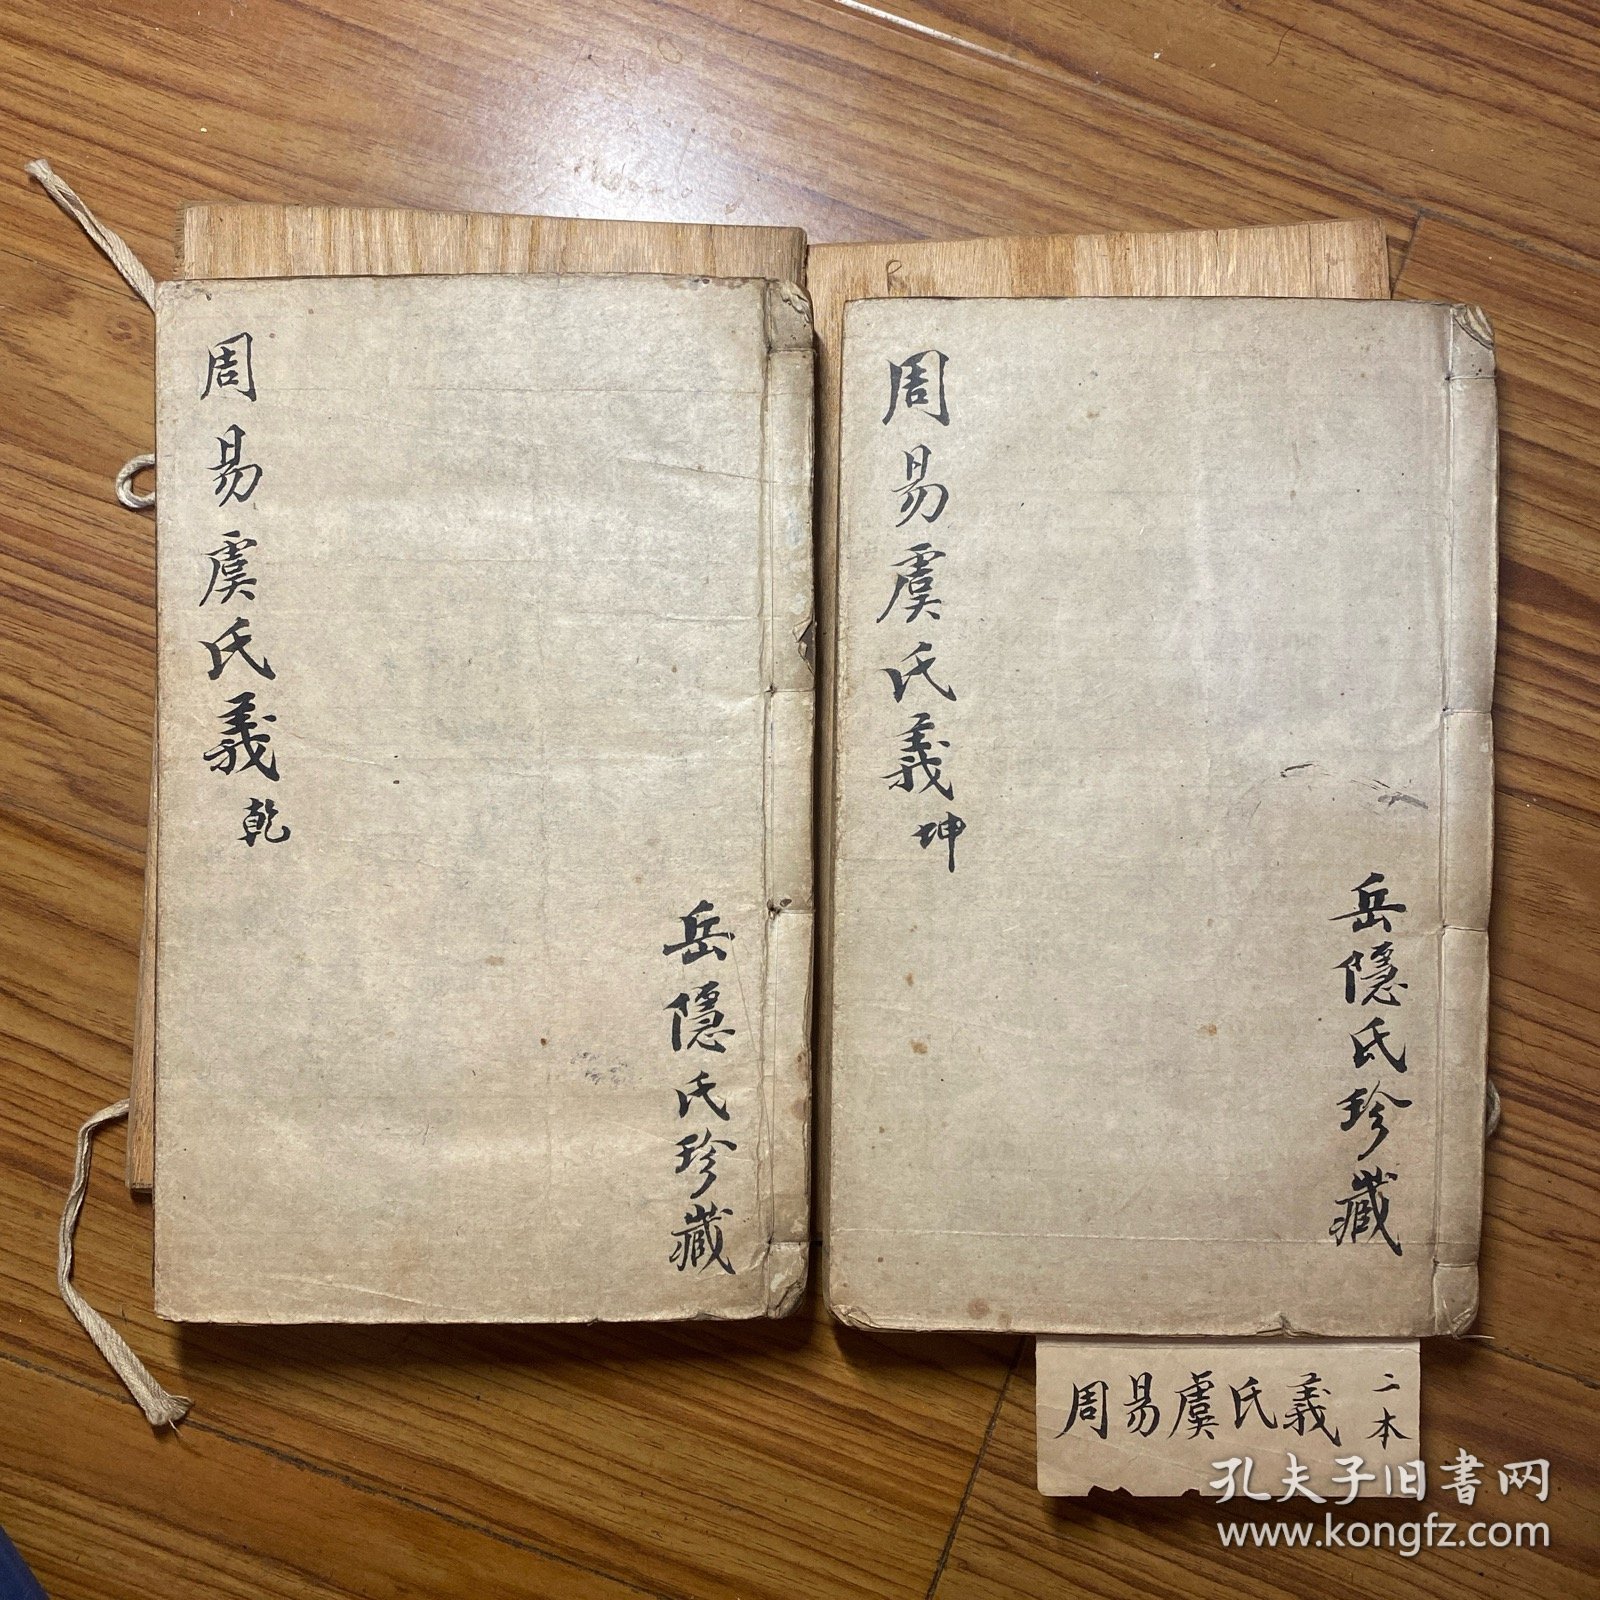 周易虞氏義乾
岳隱氏珍藏
周易虞氏義坤
岳隱氏珍藏
周易虞氏義 二本
孔夫子旧书网
www.kongfz.com